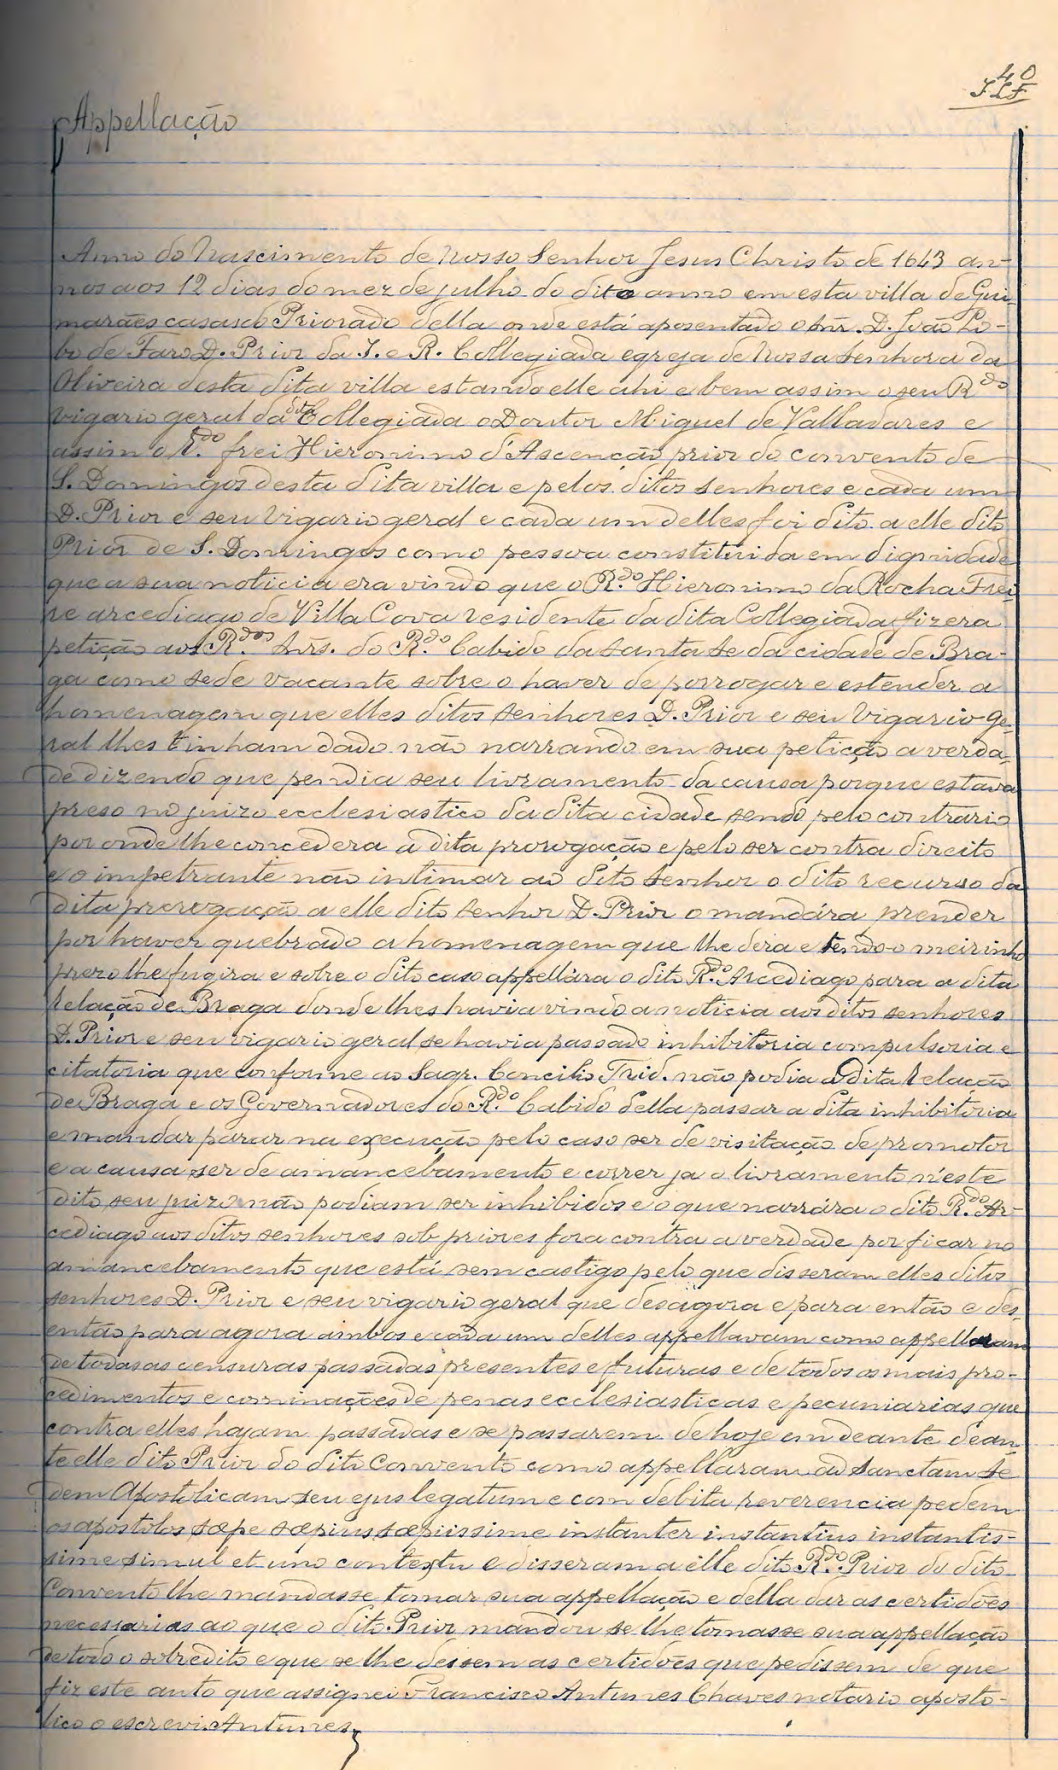 40
Appellação
Anno do Nascimento de Nosso Senhor Jesus Christo de 1643 an-
nos aos 12 dias do mez de julho do dito anno em esta villa de Gui-
marães casas do Priorado della onde está aposentado o Snr. D. João Lo-
bo de Faro D. Prior da I. e R. Collegiada egreja de Nossa Senhora da
Oliveira desta dita villa estando elle ahi e bem assim o seu R.do
vigario geral da dita Collegiada o Doutor Miguel de Valladares e
assim o R.do frei Hieronimo d'Ascenção prior do convento de
S. Domingos desta dita villa e pelos ditos senhores e cada um
D. Prior e seu Vigario geral e cada um delles foi dito a elle dito
Prior de S. Domingos como pessoa constituida em dignidade
que a sua noticia era vindo que o R.do Hieronimo da Rocha Frei-
re arcediago de Villa Cova residente da dita Collegiada fizera
petição aos R.dos Snrs. do R.do Cabido da Santa Se da cidade de Bra-
ga como sede vacante sobre o haver de porrogar e estender a
homenagem que elles ditos senhores D. Prior e seu Vigario ge-
ral lhes tinham dado não narrando em sua petição a verda-
de dizendo que pendia seu livramento da causa porque estava
preso no juizo ecclesiastico da dita cidade sendo pelo contrario
por onde lhe concedera a dita prorogação e pelo ser contra direito
e o impetrante não intimar ao dito Senhor o dito recurso da
dita prorogação a elle dito senhor D. Prior o mandára prender
por haver quebrado a homenagem que lhe dera e tendo-o meirinho
prezo lhe fugira e sobre o dito caso appellára o dito R.do Arcediago para a dita
Relação de Braga donde lhes havia vindo a noticia aos ditos senhores
D. Prior e seu vigario geral se havia passado inhibitoria compulsoria e
citatoria que conforme ao Sagr. Concilio Trid. não podia a dita Relação
de Braga e os Governadores do R.do Cabido della passar a dita inhibitoria
e mandar parar na execução pelo caso ser de visitação de promotor
e a causa ser de amancebamento e correr ja o livramento n'este
dito seu juizo não podiam ser inhibidos e o que narrára o dito R.do Ar-
cediago aos ditos senhores sob priores fora contra a verdade por ficar no
amancebamento que está sem castigo pelo que disseram elles ditos
senhores D. Prior e seu vigario geral que desagora e para então e des
então para agora ambos e cada um delles appellavam como appellaram
de todas as censuras passadas presentes e futuras e de todos os mais pro-
cedimentos e cominações de penas ecclesiasticas e pecuniarias que
contra elles hajam passadas e se passarem de hoje em deante dean-
te elle dito Prior do dito Convento como appellaram ad Sanctam Se
dem Apostolicam seu ejus legatum e com debita reverencia pedem
os apostolos sæpe sæpius sæpissime instanter instantius instantis-
sime simul et uno contextu e disseram a elle dito R.do Prior do dito
Convento lhe mandasse tomar sua appellação e della dar as certidões
necessarias ao que o dito Prior mandou se lhe tomasse sua appellação
de todo o sobredito e que se lhe dessem as certidões que pedissem de que
fiz este auto que assignei Francisco Antunes Chaves notario aposto-
lico o escrevi. Antunes